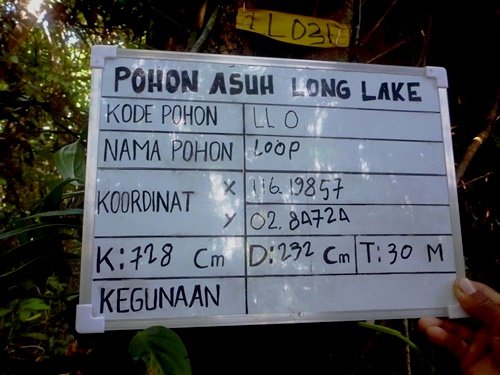 LL031
POHON ASUH LONG LAKE
KODE POHON LL O
NAMA POHON LOOP
KOORDINAT X 116.19857
Y 02.84724
K:728 Cm D:232 Cm T:30 M
KEGUNAAN